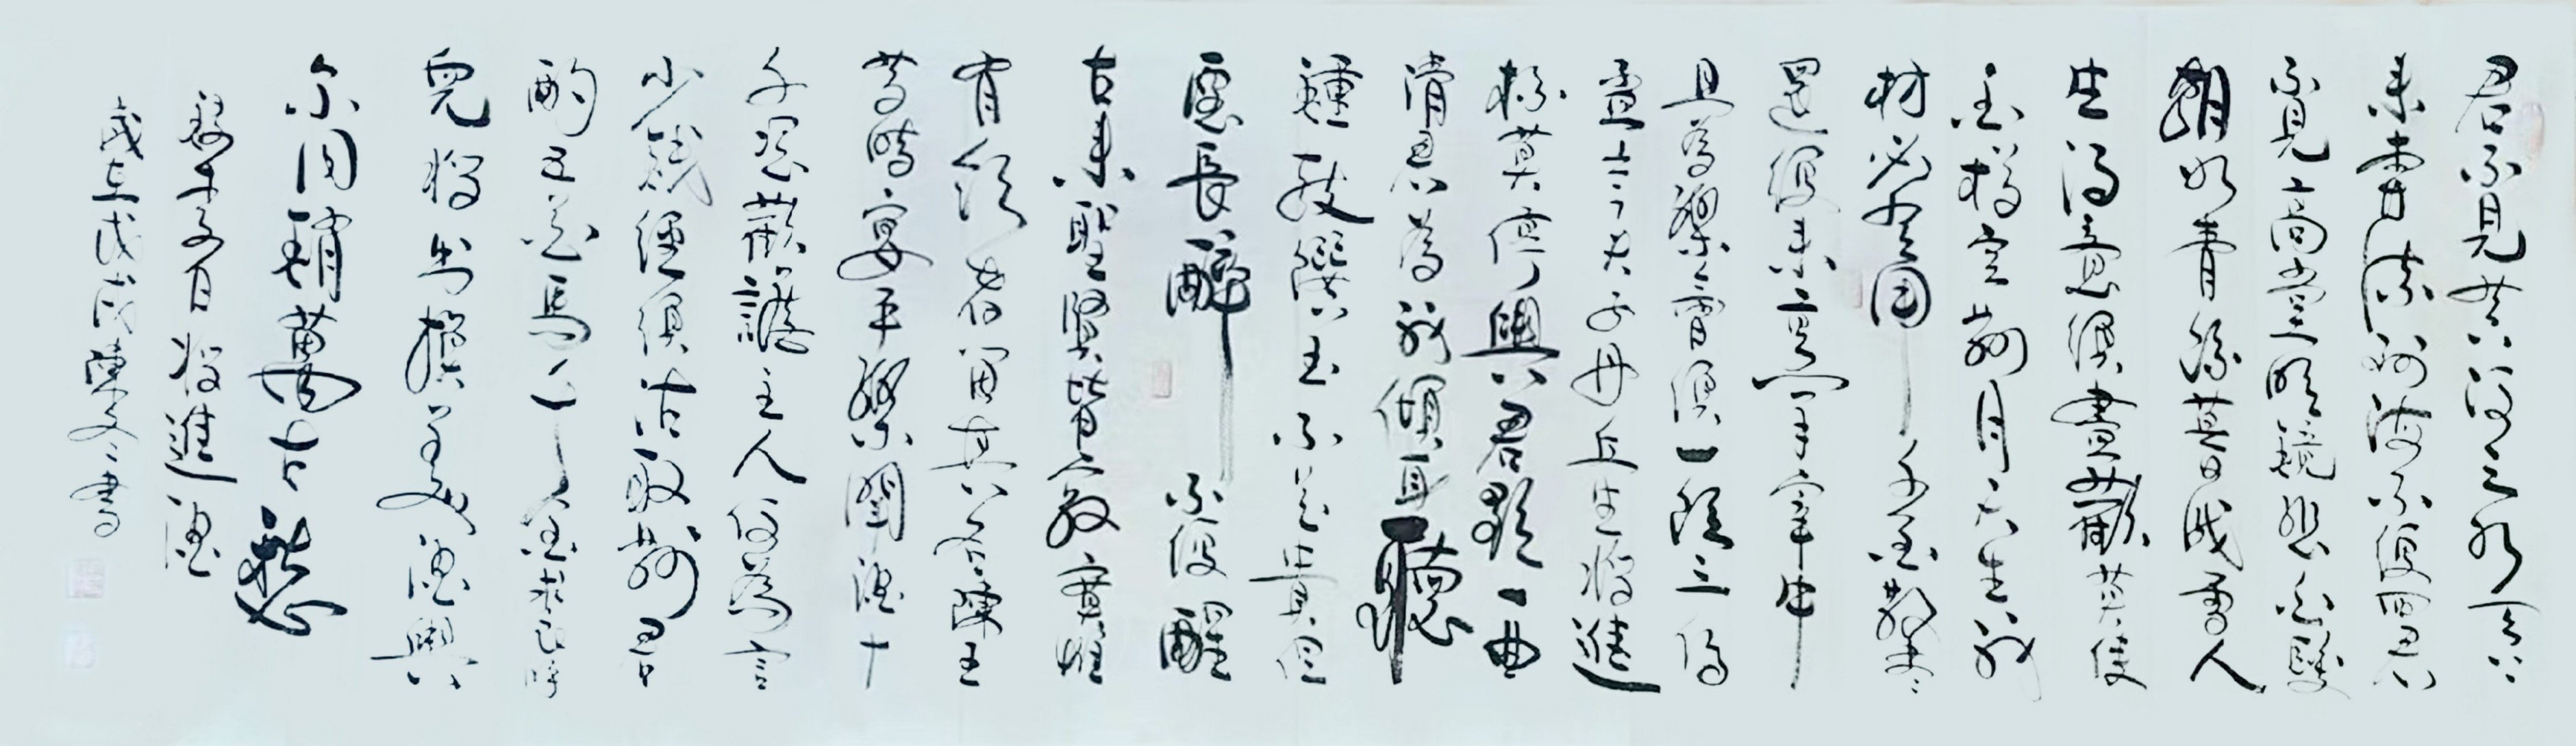 君不見黃河之水天上
來奔流到海不復回君
不見高堂明鏡悲白髮
朝如青絲暮成雪人
生得意須盡歡莫使
金樽空對月天生我
材必有用千金散盡
還復來烹羊宰牛
且為樂會須一飲三百
杯莫停與君歌一曲
請君為我傾耳聽
鐘鼓饌玉不足貴但
願長醉不復醒
古來聖賢皆寂寞惟
有飲者留其名陳王
昔時宴平樂鬥酒十
千恣歡謔主人何為言
少錢徑須沽取對君
酌五花馬千金裘呼
兒將出換美酒與
爾同銷萬古愁
錄李白將進酒
歲在戊戌陳書